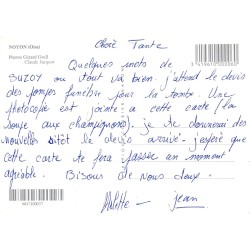 NOYON (Oise)
Chère Tante
Quelques mots de
SUZOY ou tout va bien. j'attend le devis
des pompes funèbres pour la tombe. Une
photocopie est jointe a cette carte (la
soupe aux champignons). je te donnerai des
nouvelles sitôt le devis arrivé. j'espère que
cette carte te fera passer un moment
agréable. Bisous de nous deux.
Arlette - jean